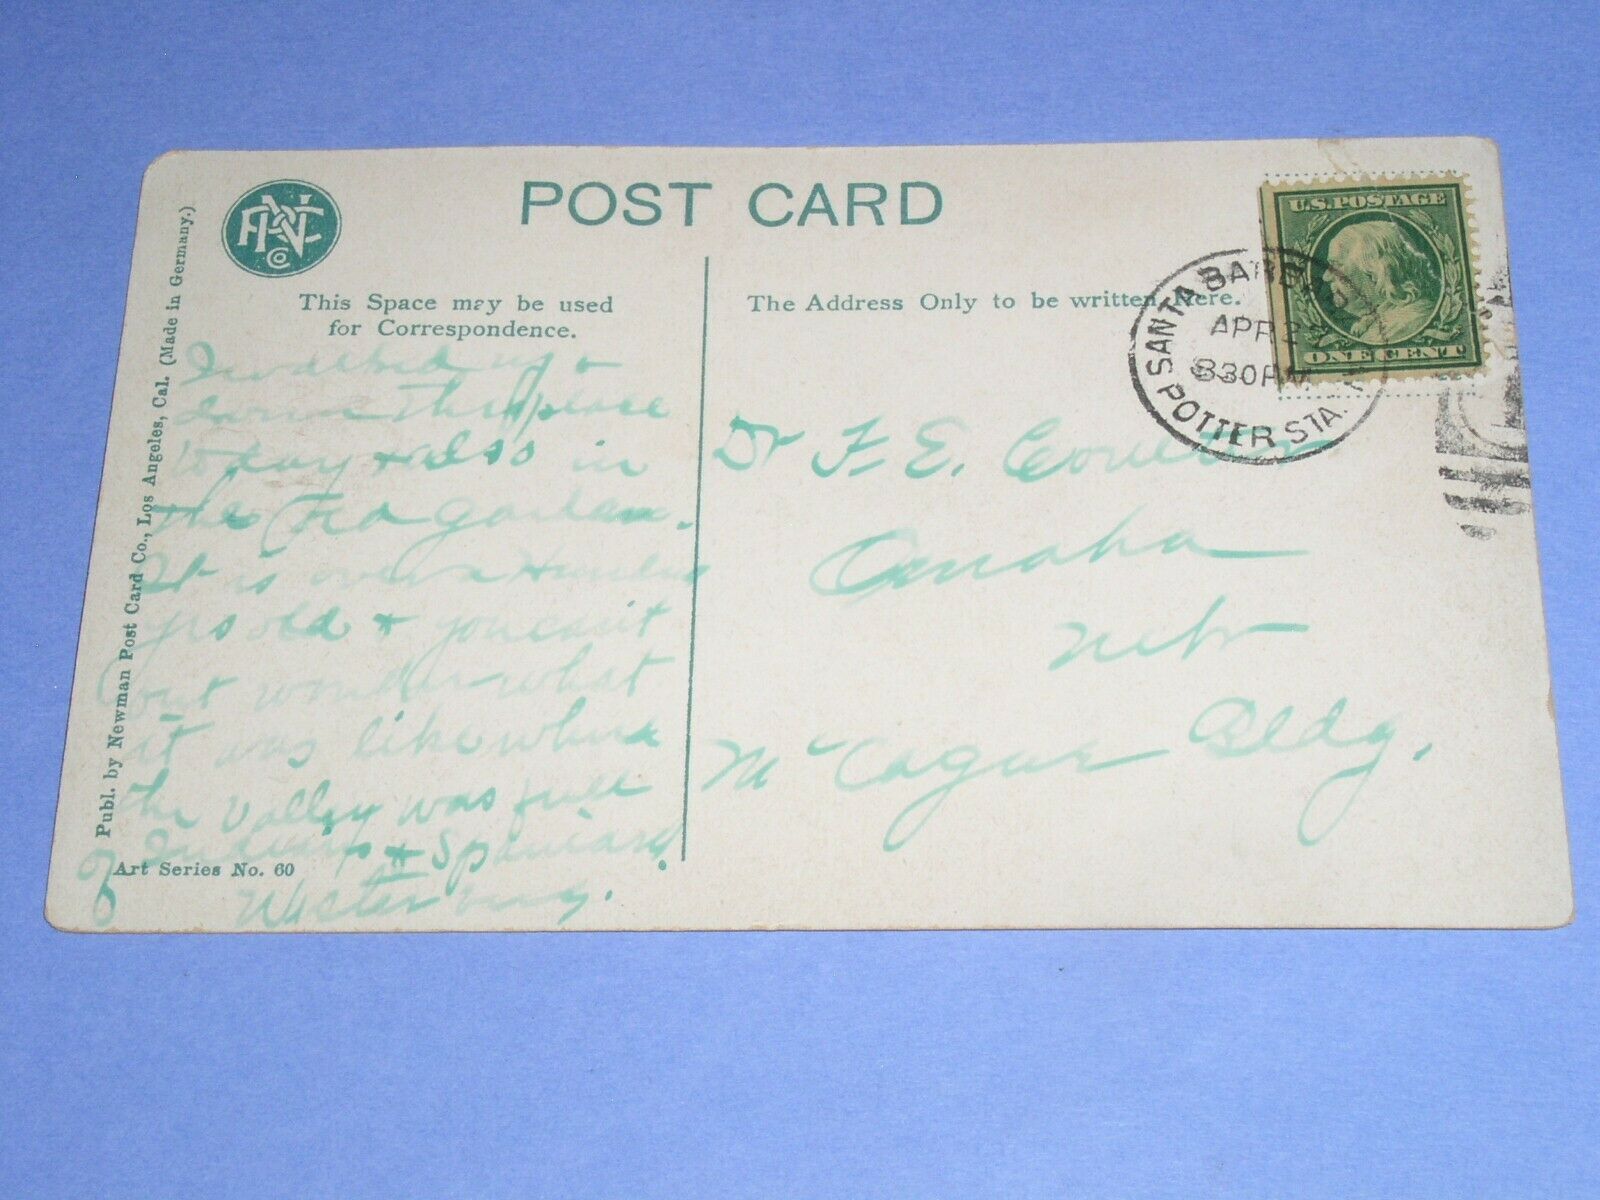 POST CARD
PNC
Co
This Space may be used
for Correspondence.
The Address Only to be written Here.
U.S. POSTAGE
ONE CENT
SANTA BARBARA
APR 2
830 AM
POTTER STA.
Publ. by Newman Post Card Co., Los Angeles, Cal. (Made in Germany.)
I walked up &
down this place
today & also in
the garden.
It is over a Hundred
yrs old & you can't
but wonder what
it was like when
the Valley was full
of Indians & Spaniards.
Art Series No. 60
Dr F. E. Coulter
Omaha
Nebr
McCague Bldg.